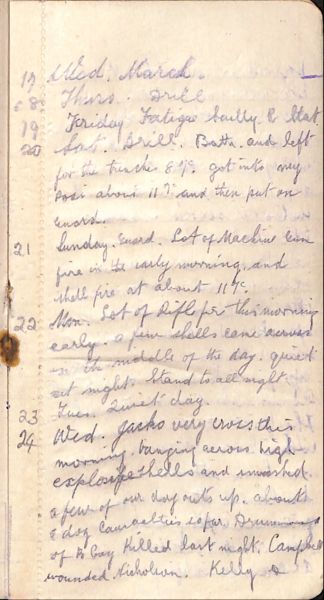 17 Wed. March.
18 Thurs. Drill
19 Friday Fatigue Scully R. Stat.
20 Sat. Drill. Bath. and left
for the trenches got into new
posi about 11 and then put on
Guard.
21 Sunday. Guard. Lot of Machine Gun
fire in the early morning, and
shell fire at about 11
22 Mon. Lot of Rifle fir this morning
early. a few shells came across
in th middle of the day. quiet
at night. Stand to all night
23 Tues. Quiet day.
24 Wed. Jacko very cross this
morning. banging across high
explosife shells and smashed
a few of our dog outs up. about
a doz Causalties sofar.
of B Coy Killed last night. Campbell
wounded Nicholson. Kelly